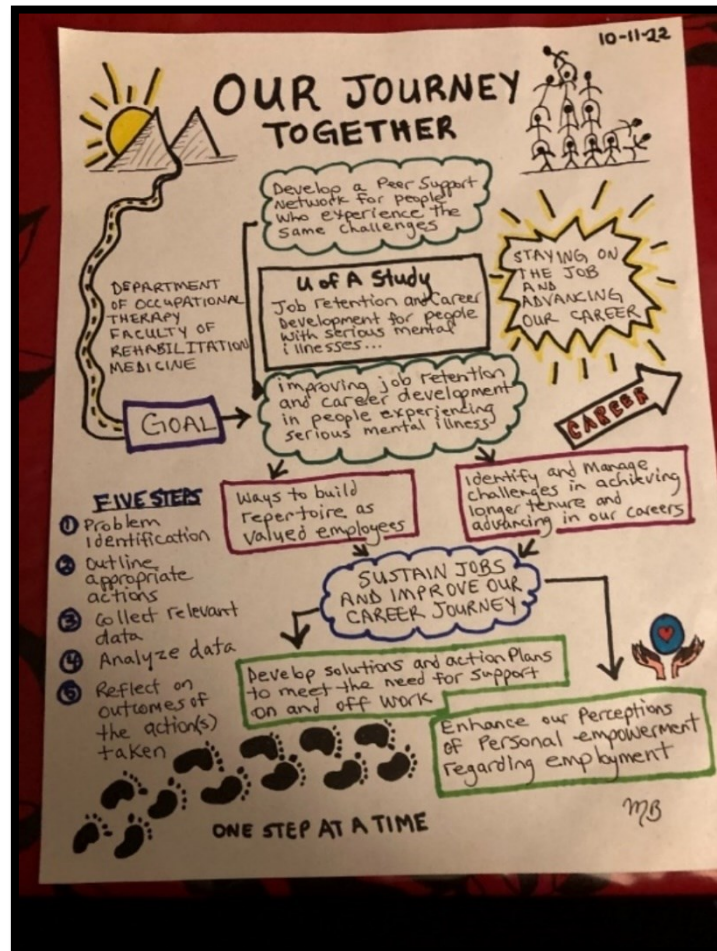 10-11-22
OUR JOURNEY
TOGETHER
Develop a Peer Support
Network for people
who experience the
same challenges
STAYING ON
THE JOB
AND
ADVANCING
OUR CAREER
U of A Study
Job retention and Career
Development for people
with serious mental
illnesses...
DEPARTMENT
OF OCCUPATIONAL
THERAPY
FACULTY OF
REHABILITATION
MEDICINE
GOAL
improving job retention
and career development
in people experiencing
serious mental illness
CAREER
FIVE STEPS
1 Problem
identification
2 Outline
appropriate
actions
3 Collect relevant
data
4 Analyze data
5 Reflect on
outcomes of
the action(s)
taken
Ways to build
repertoire as
valued employees
Identify and Manage
challenges in achieving
longer tenure and
advancing in our careers
SUSTAIN JOBS
AND IMPROVE OUR
CAREER JOURNEY
Develop solutions and action Plans
to meet the need for support
on and off work
Enhance our Perceptions
of Personal empowerment
regarding employment
ONE STEP AT A TIME
MB